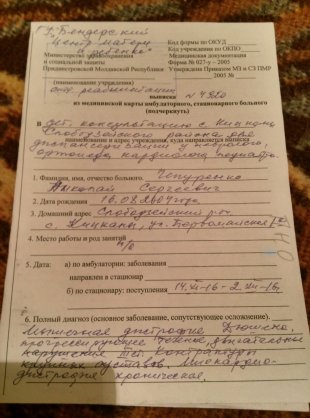 г. Бендерский
Центр матери
и ребенка
Министерство здравоохранения
и социальной защиты
Приднестровской Молдавской Республики
(наименование учреждения)
Код формы по ОКУД
Код учреждения по ОКПО
Медицинская документация
Форма № 027-у – 2005
Утверждена Приказом МЗ и СЗ ПМР
2005 №
отд. реабилитации
выписка № 4320
из медицинской карты амбулаторного, стационарного больного
(подчеркнуть)
В дет. консультацию с. Кицканы
Слободзейского района для
наименование и адрес учреждения, куда направляется выписка
диспансеризации у невролога,
ортопеда, кардиолога, педиатра.
1. Фамилия, имя, отчество больного.
Николай Сергеевич
2. Дата рождения 16.08.2004 года
3. Домашний адрес Слободзейский р-он
с. Кицканы, ул. Первомайская
4. Место работы и род занятий н/о
5. Дата: а) по амбулатории: заболевания
направлен в стационар
б) по стационару: поступления 14.XI-16 - 2.XII-16
6. Полный диагноз (основное заболевание, сопутствующее осложнение).
Мышечная дистрофия Дюшена,
прогрессирующее течение, двигательные
нарушения. Контрактуры
крупных суставов. Миокардио-
дистрофия хроническая.